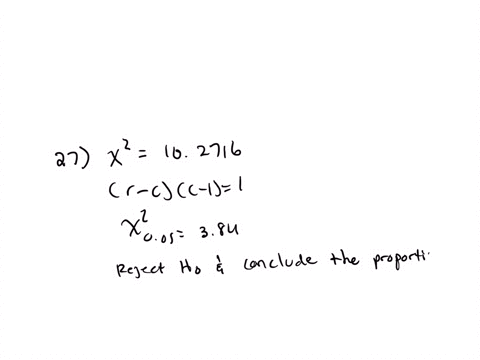 27) χ² = 10.2716
(r-c)(c-1)=1
χ²0.05= 3.84
Reject H0 & conclude the proporti